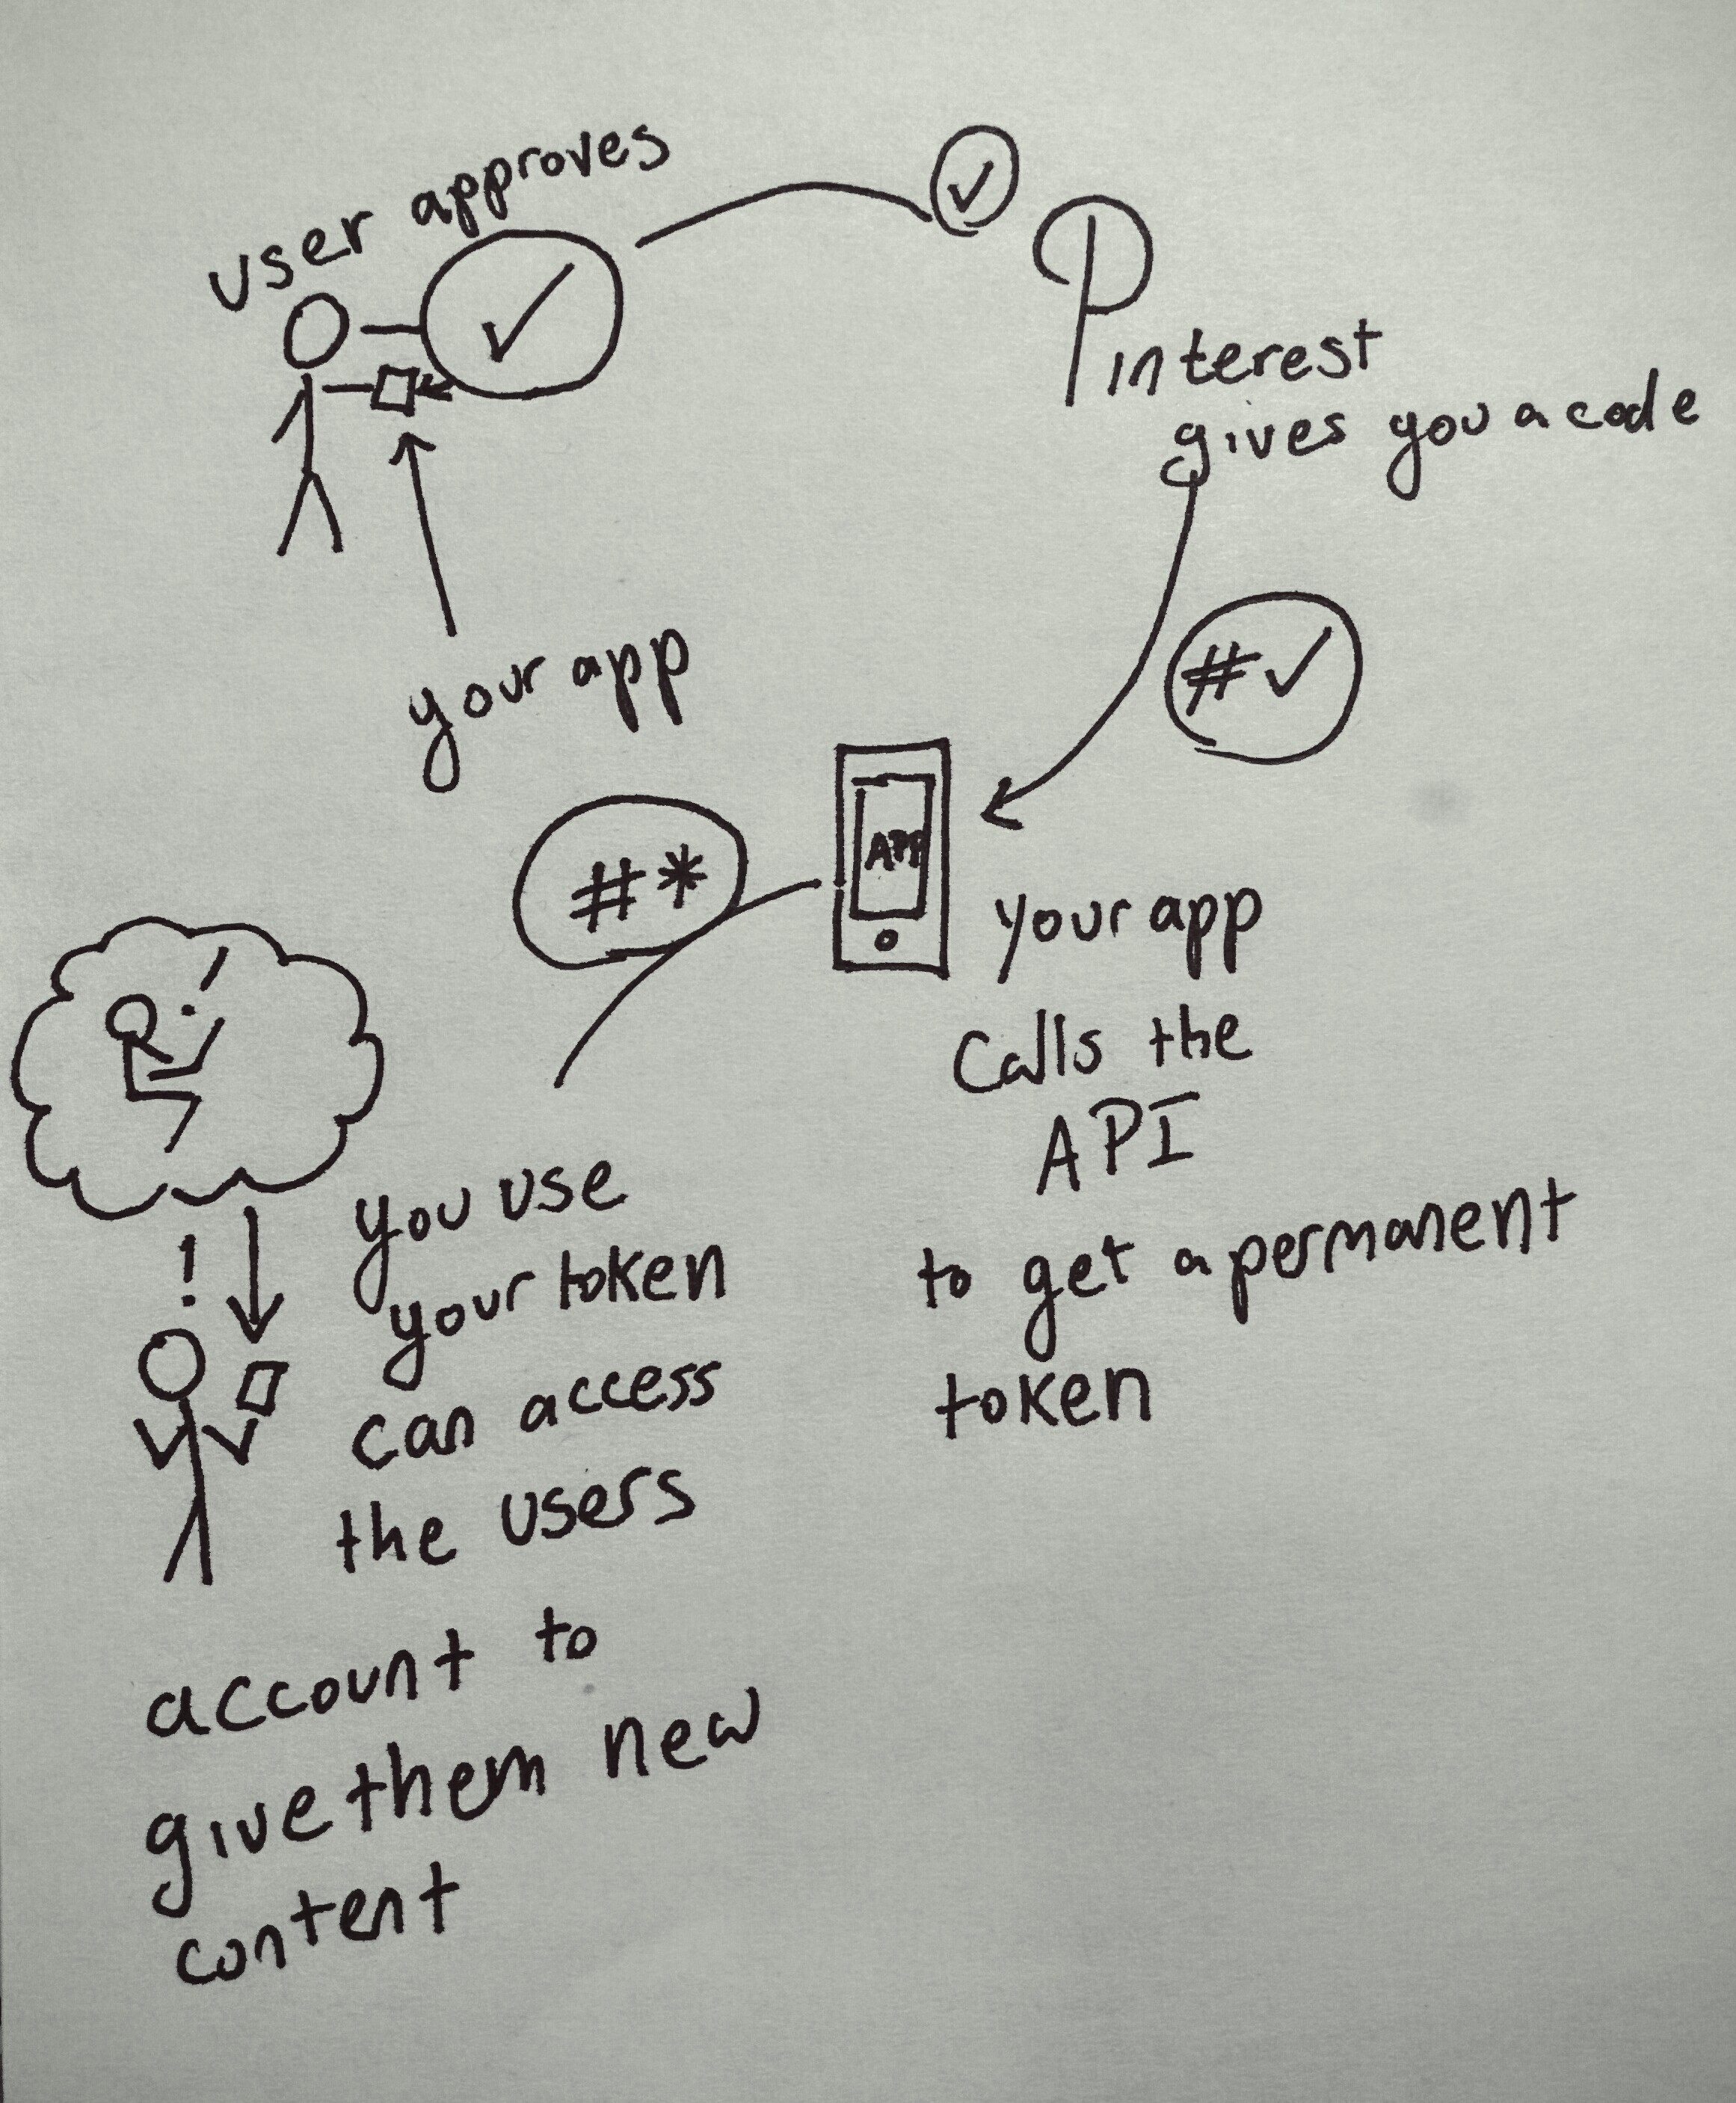 user approves
✓
✓
Pinterest
gives you a code
your app
#✓
#*
APP
your app
calls the
API
to get a permanent
token
!
you use
your token
can access
the users
account to
give them new
content